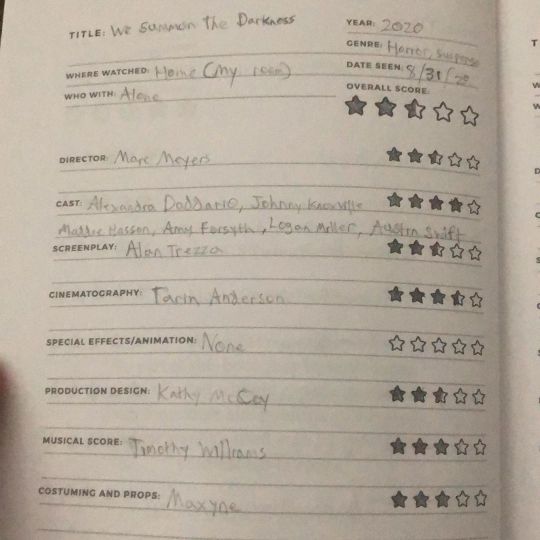 TITLE: We Summon The Darkness
YEAR: 2020
GENRE: Horror, suspense
WHERE WATCHED: Home (My room)
DATE SEEN: 8/31/20
WHO WITH: Alone
OVERALL SCORE:
DIRECTOR: Marc Meyers
CAST: Alexandra Daddario, Johnny Knoxville
Maddie Hasson, Amy Forsyth, Logan Miller, Austin Swift
SCREENPLAY: Alan Trezza
CINEMATOGRAPHY: Tarin Anderson
SPECIAL EFFECTS/ANIMATION: None
PRODUCTION DESIGN: Kathy McCoy
MUSICAL SCORE: Timothy Williams
COSTUMING AND PROPS: Maxyne